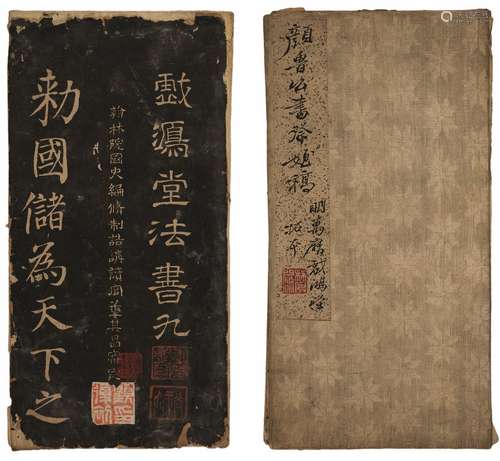 戲鴻堂法書九
翰林院國史編修制誥講讀官董其昌審定
勅國儲為天下之
顏魯公書祭姪稿
明萬曆戲鴻堂
拓本